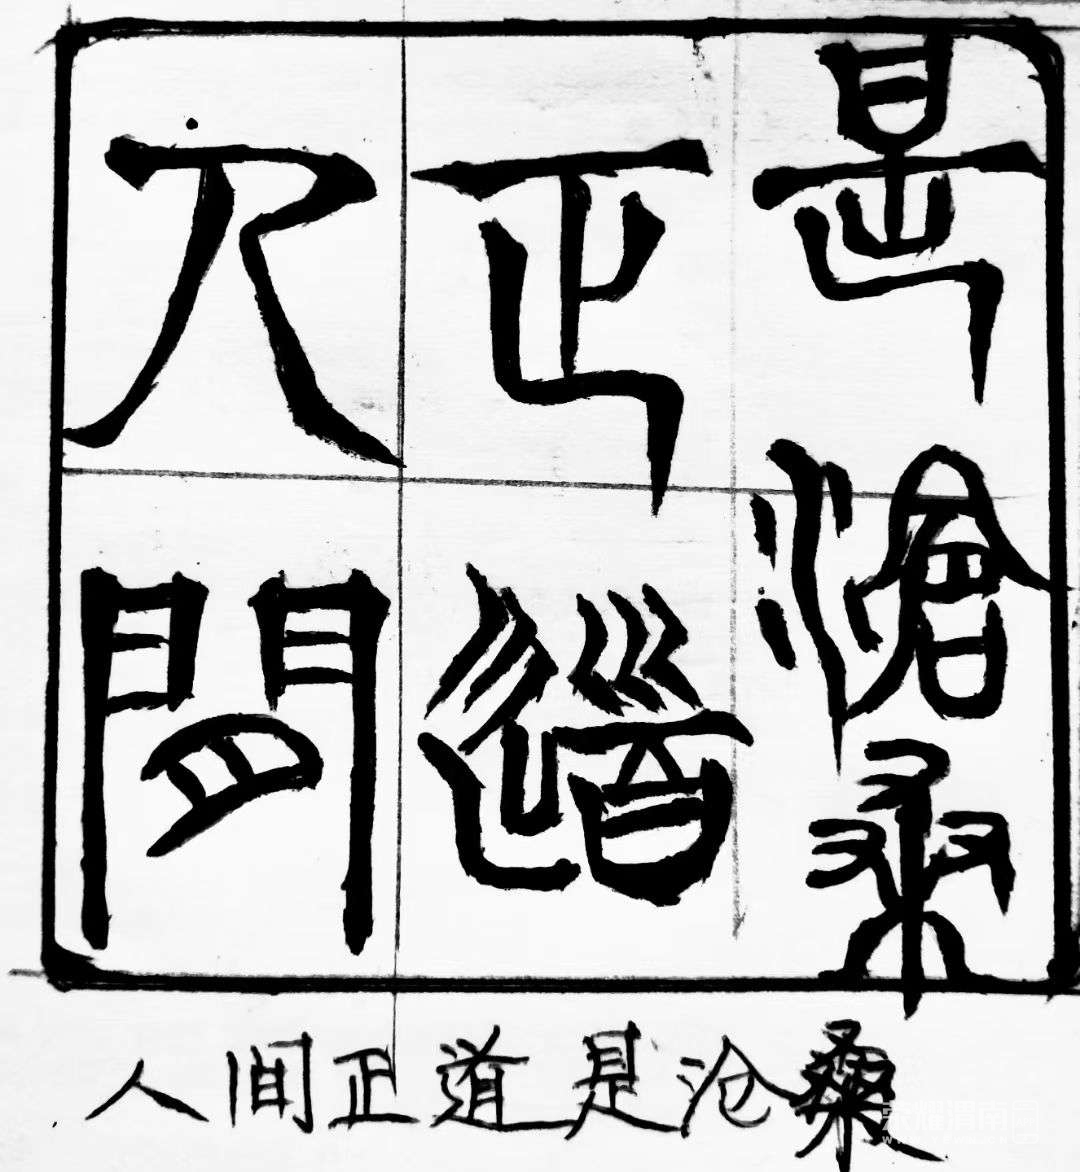 人間
正道
是滄桑
人间正道是沧桑